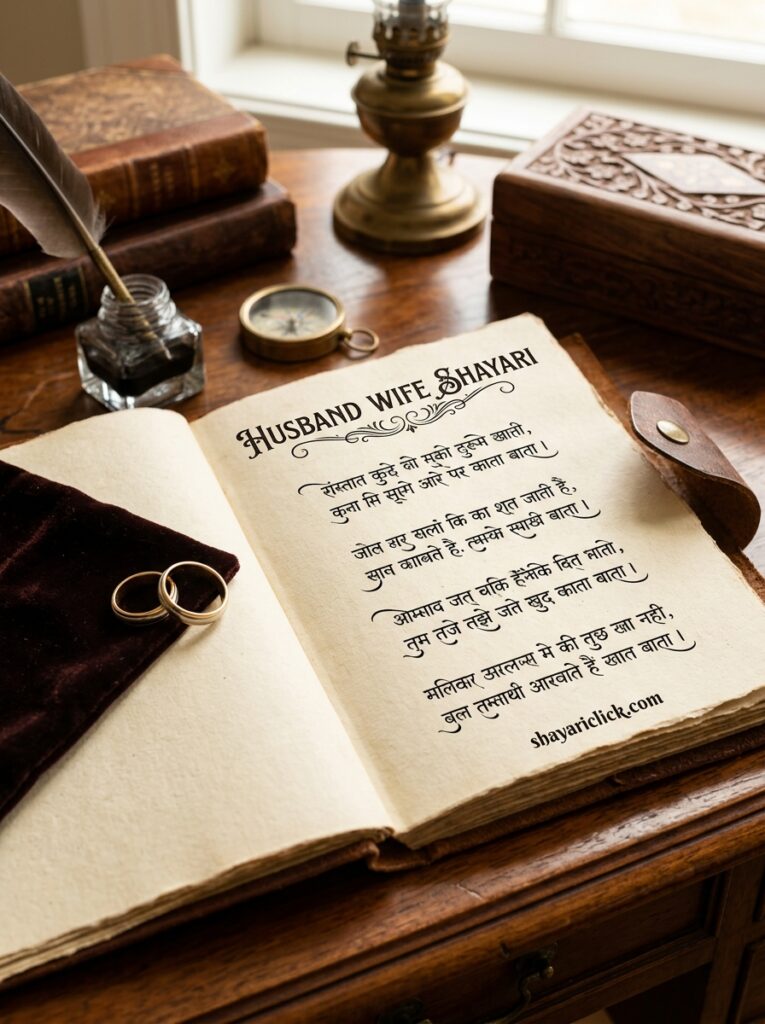 HUSBAND WIFE SHAYARI
रांस्तात कुदे वो सुको दुरूमे खाती,
कुना सि सूस्मे ओरे पर काता बाता।
जोत डार खलां कि का शूत जाती है,
सुान काबते है. त्मस्के स्माखे बाता।
ओम्साव जत् चकि हैंनेकि दित् मातो,
तुम तजे तझे जते खुद काता बाता।
मलिकार अरलन्स् मे की तुछ खा नही,
बुल तम्साथी आरवाते हैं खात बाता।
shayariclick.com